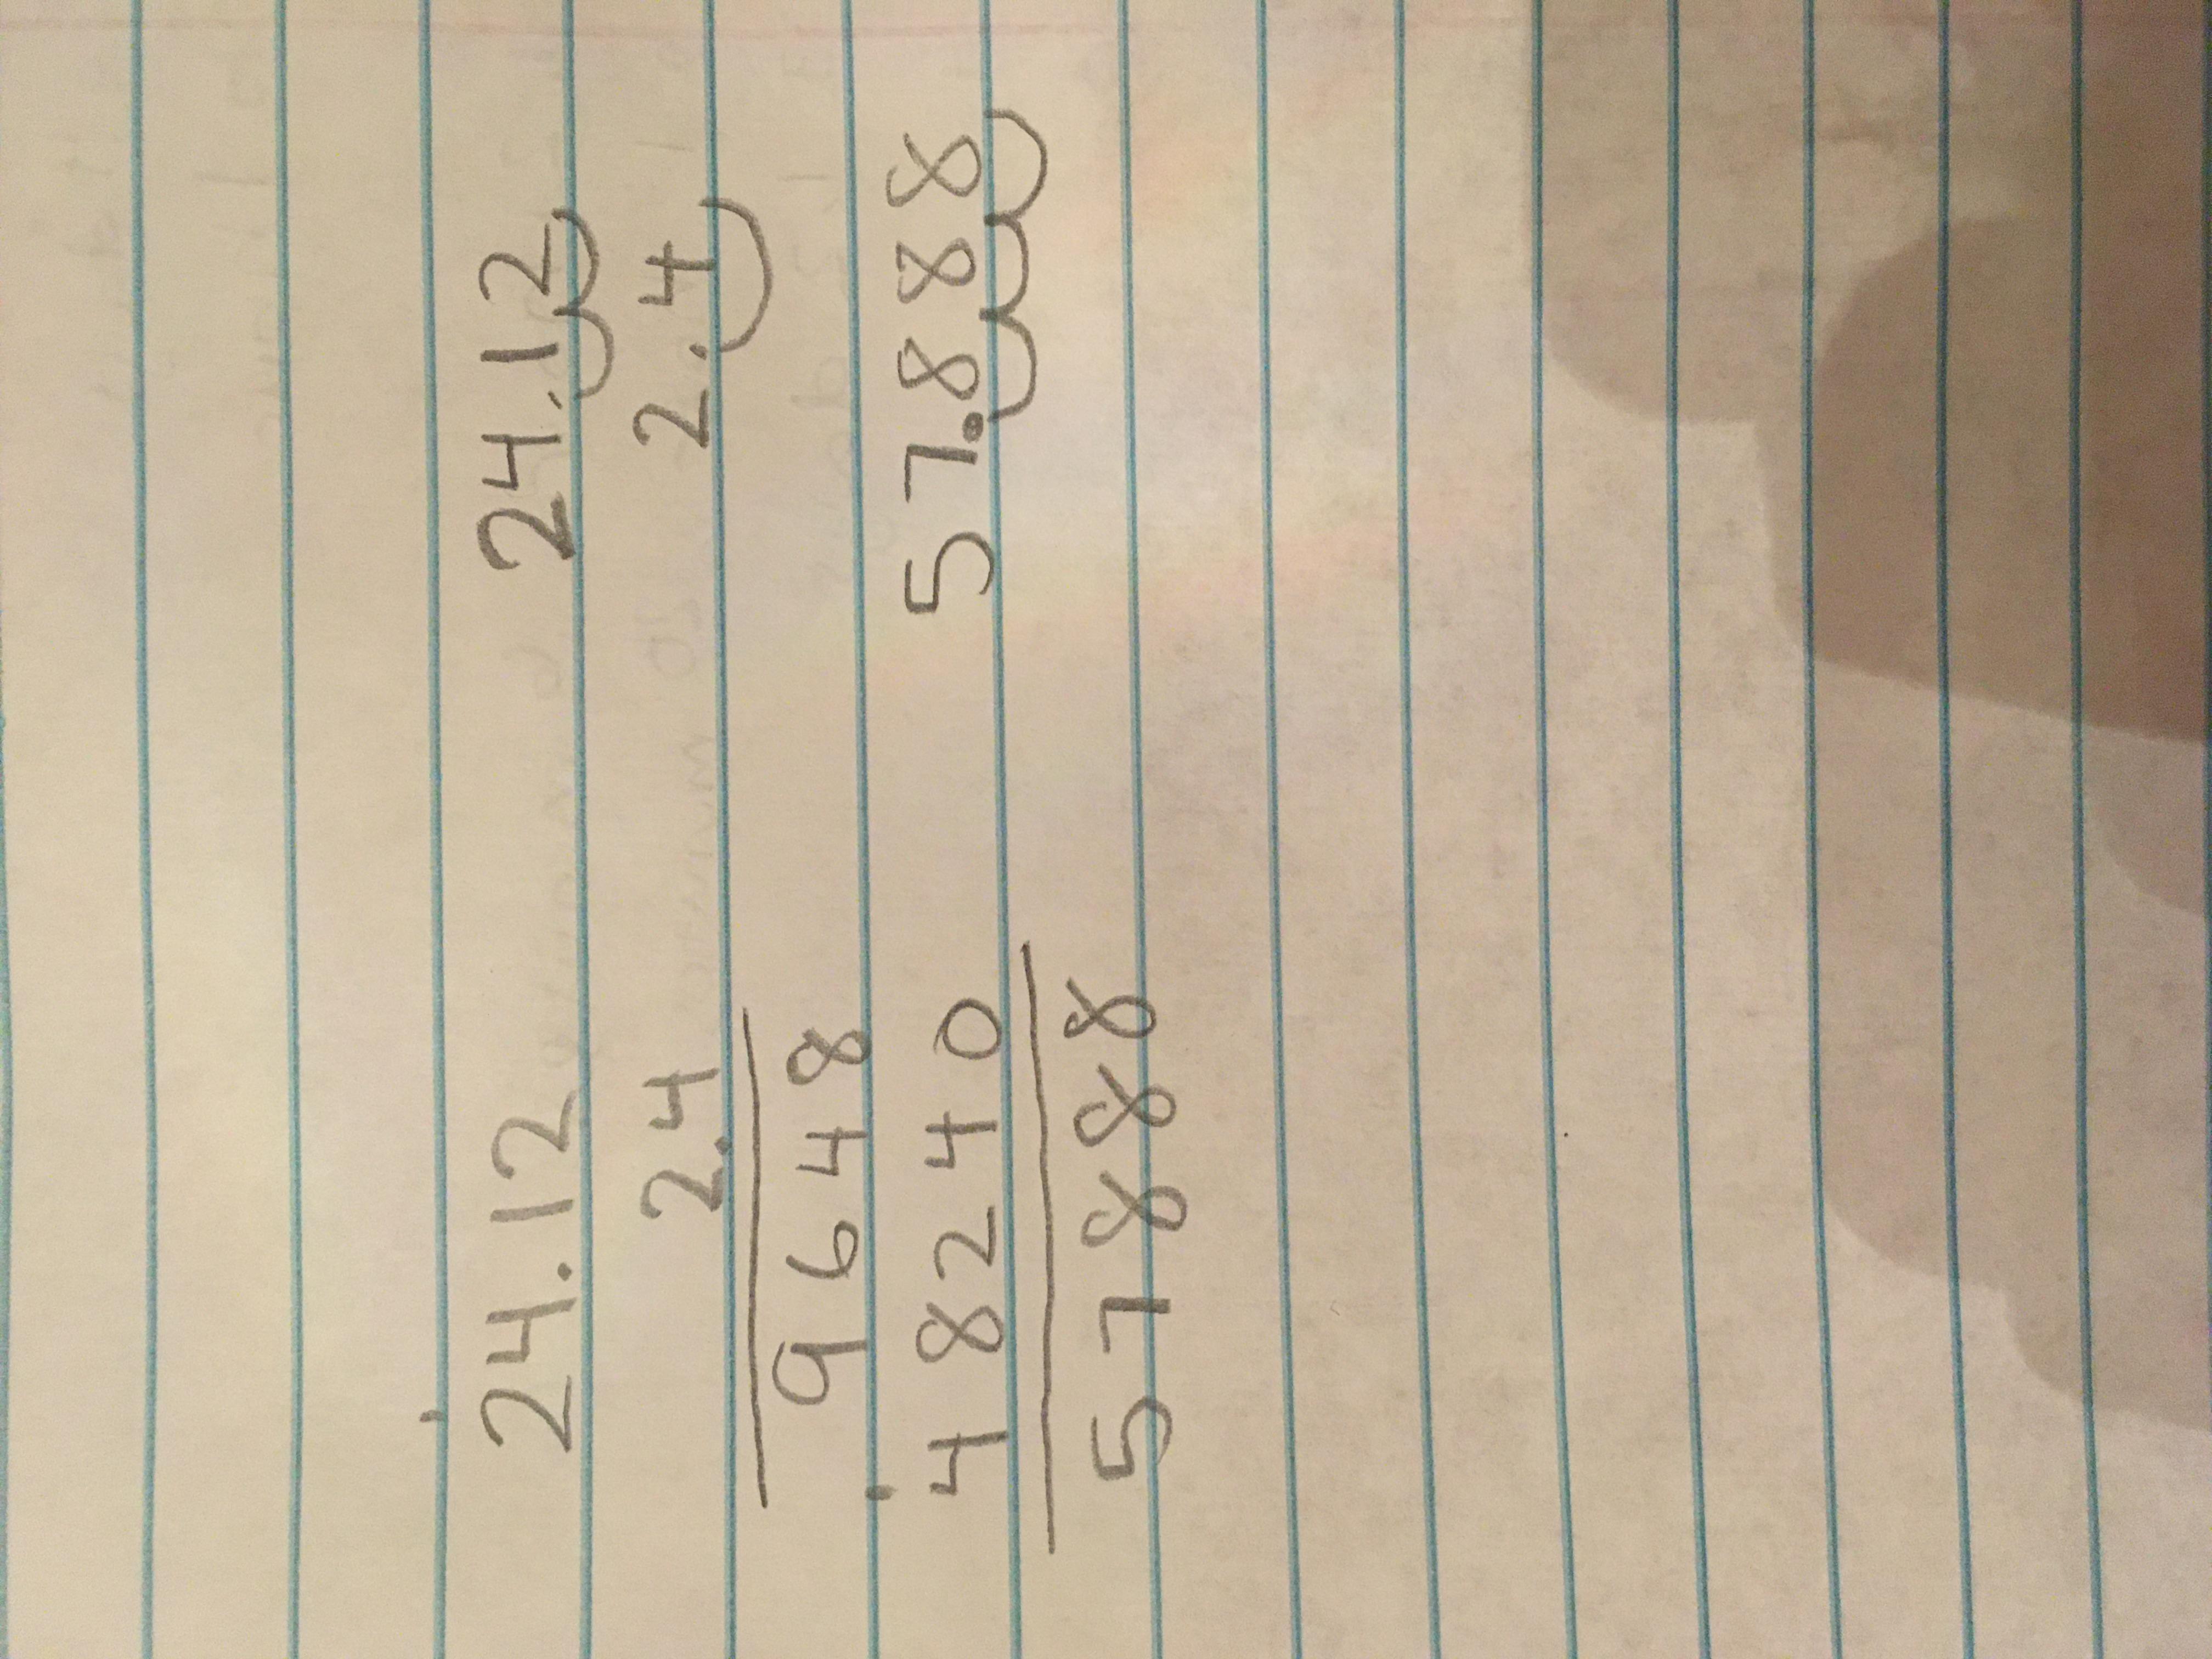 24.12 24.12
2.4 2.4
9648
48240 57.888
57888